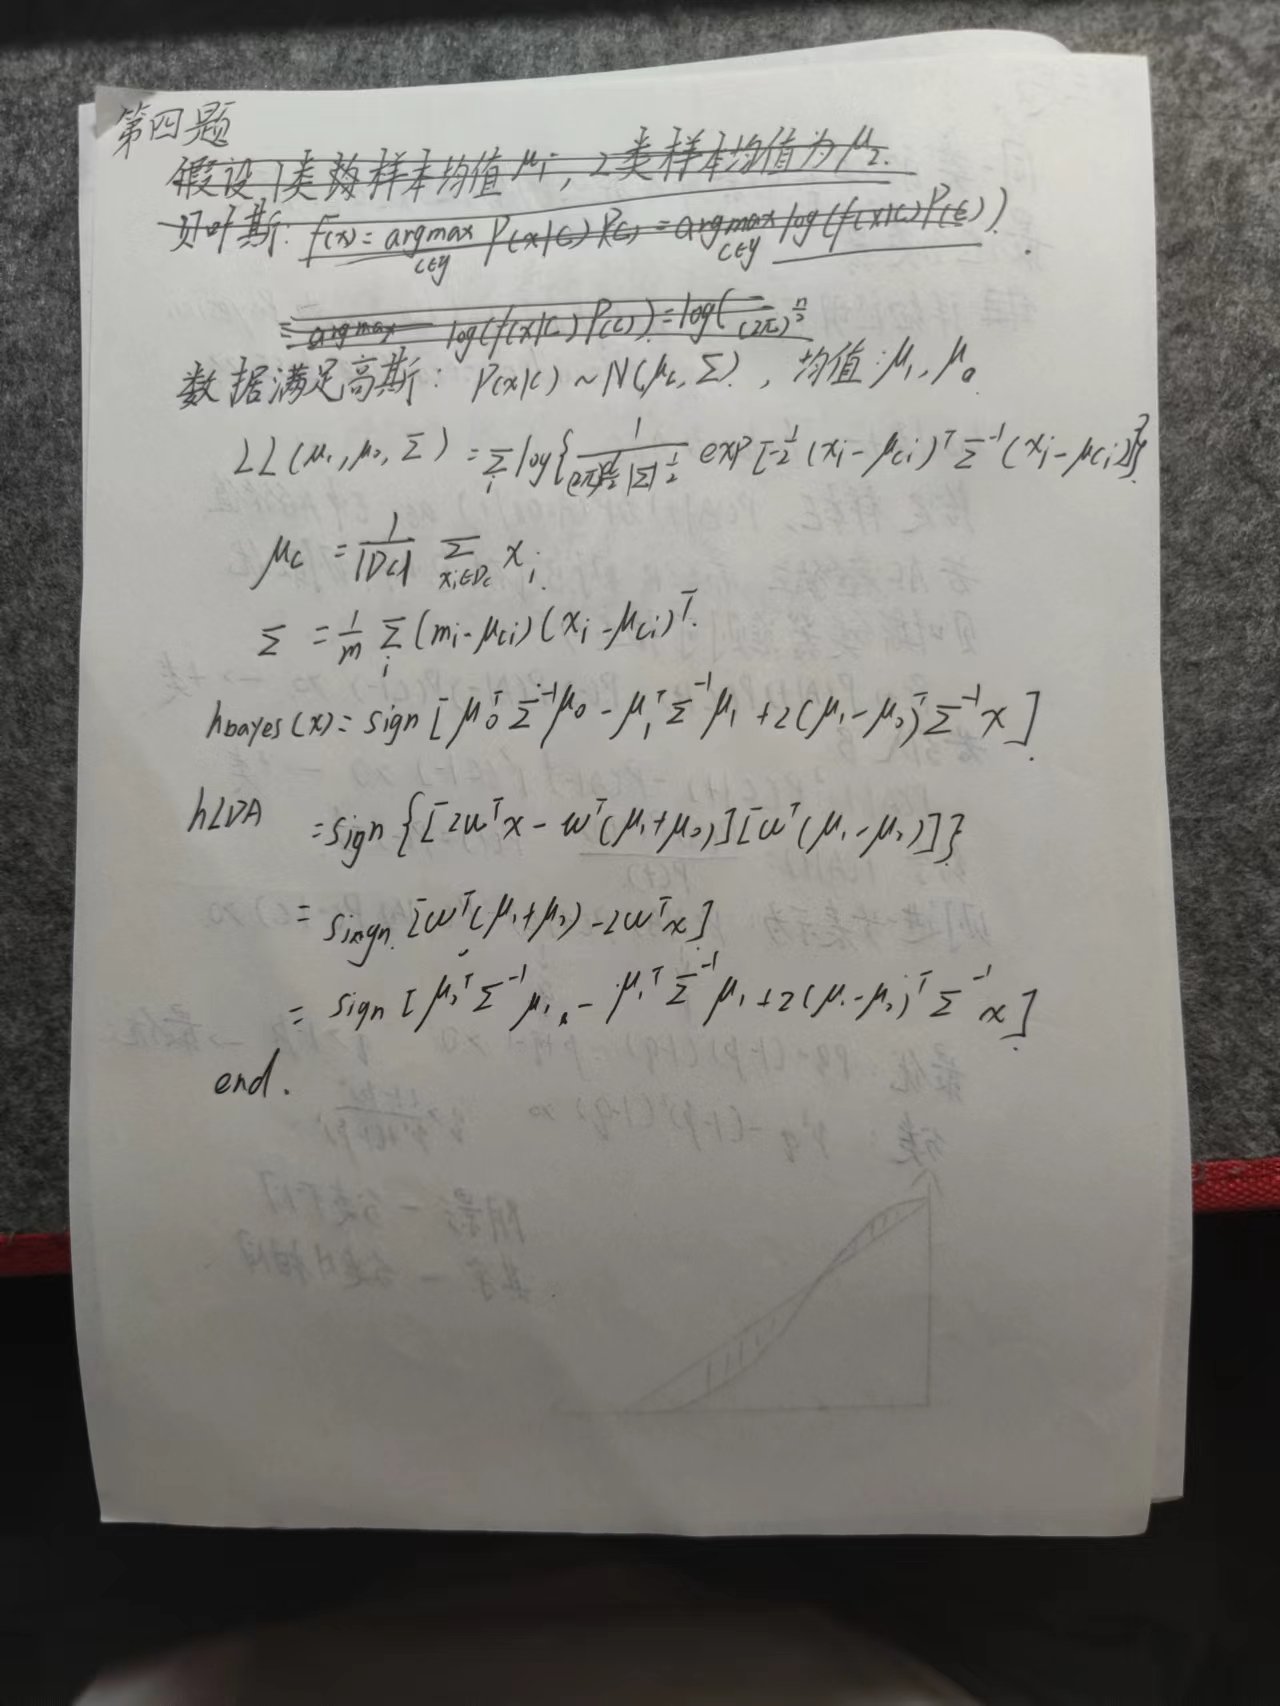 第四题
假设1类的样本均值μ₁, 2类样本均值为μ₂.
贝叶斯: f(x) = argmax_{c∈y} P(x|c) P(c) = argmax_{c∈y} log(f(x|c)P(c)).
= argmax log(f(x|c)P(c)) = log( — (2π)^{n/2}
数据满足高斯: P(x|c) ~ N(μ_c, Σ), 均值: μ₁, μ₀
LL(μ₁, μ₀, Σ) = Σ_i log{ 1/((2π)^{d/2}|Σ|^{1/2}) exp[-1/2 (x_i - μ_{ci})^T Σ^{-1} (x_i - μ_{ci})]}
μ_c = 1/|D_c| Σ_{x_i∈D_c} x_i
Σ = 1/m Σ_i (m_i - μ_{ci})(x_i - μ_{ci})^T
h_{bayes}(x) = sign[μ₀^T Σ^{-1} μ₀ - μ₁^T Σ^{-1} μ₁ + 2(μ₁ - μ₀)^T Σ^{-1} x].
hLDA = sign{[2w^T x - w^T(μ₁+μ₀)][w^T(μ₁-μ₀)]}
= sign. [w^T(μ₁+μ₀) - 2w^T x]
= sign[μ₀^T Σ^{-1} μ₁ - μ₁^T Σ^{-1} μ₁ + 2(μ₁-μ₀)^T Σ^{-1} x].
end.